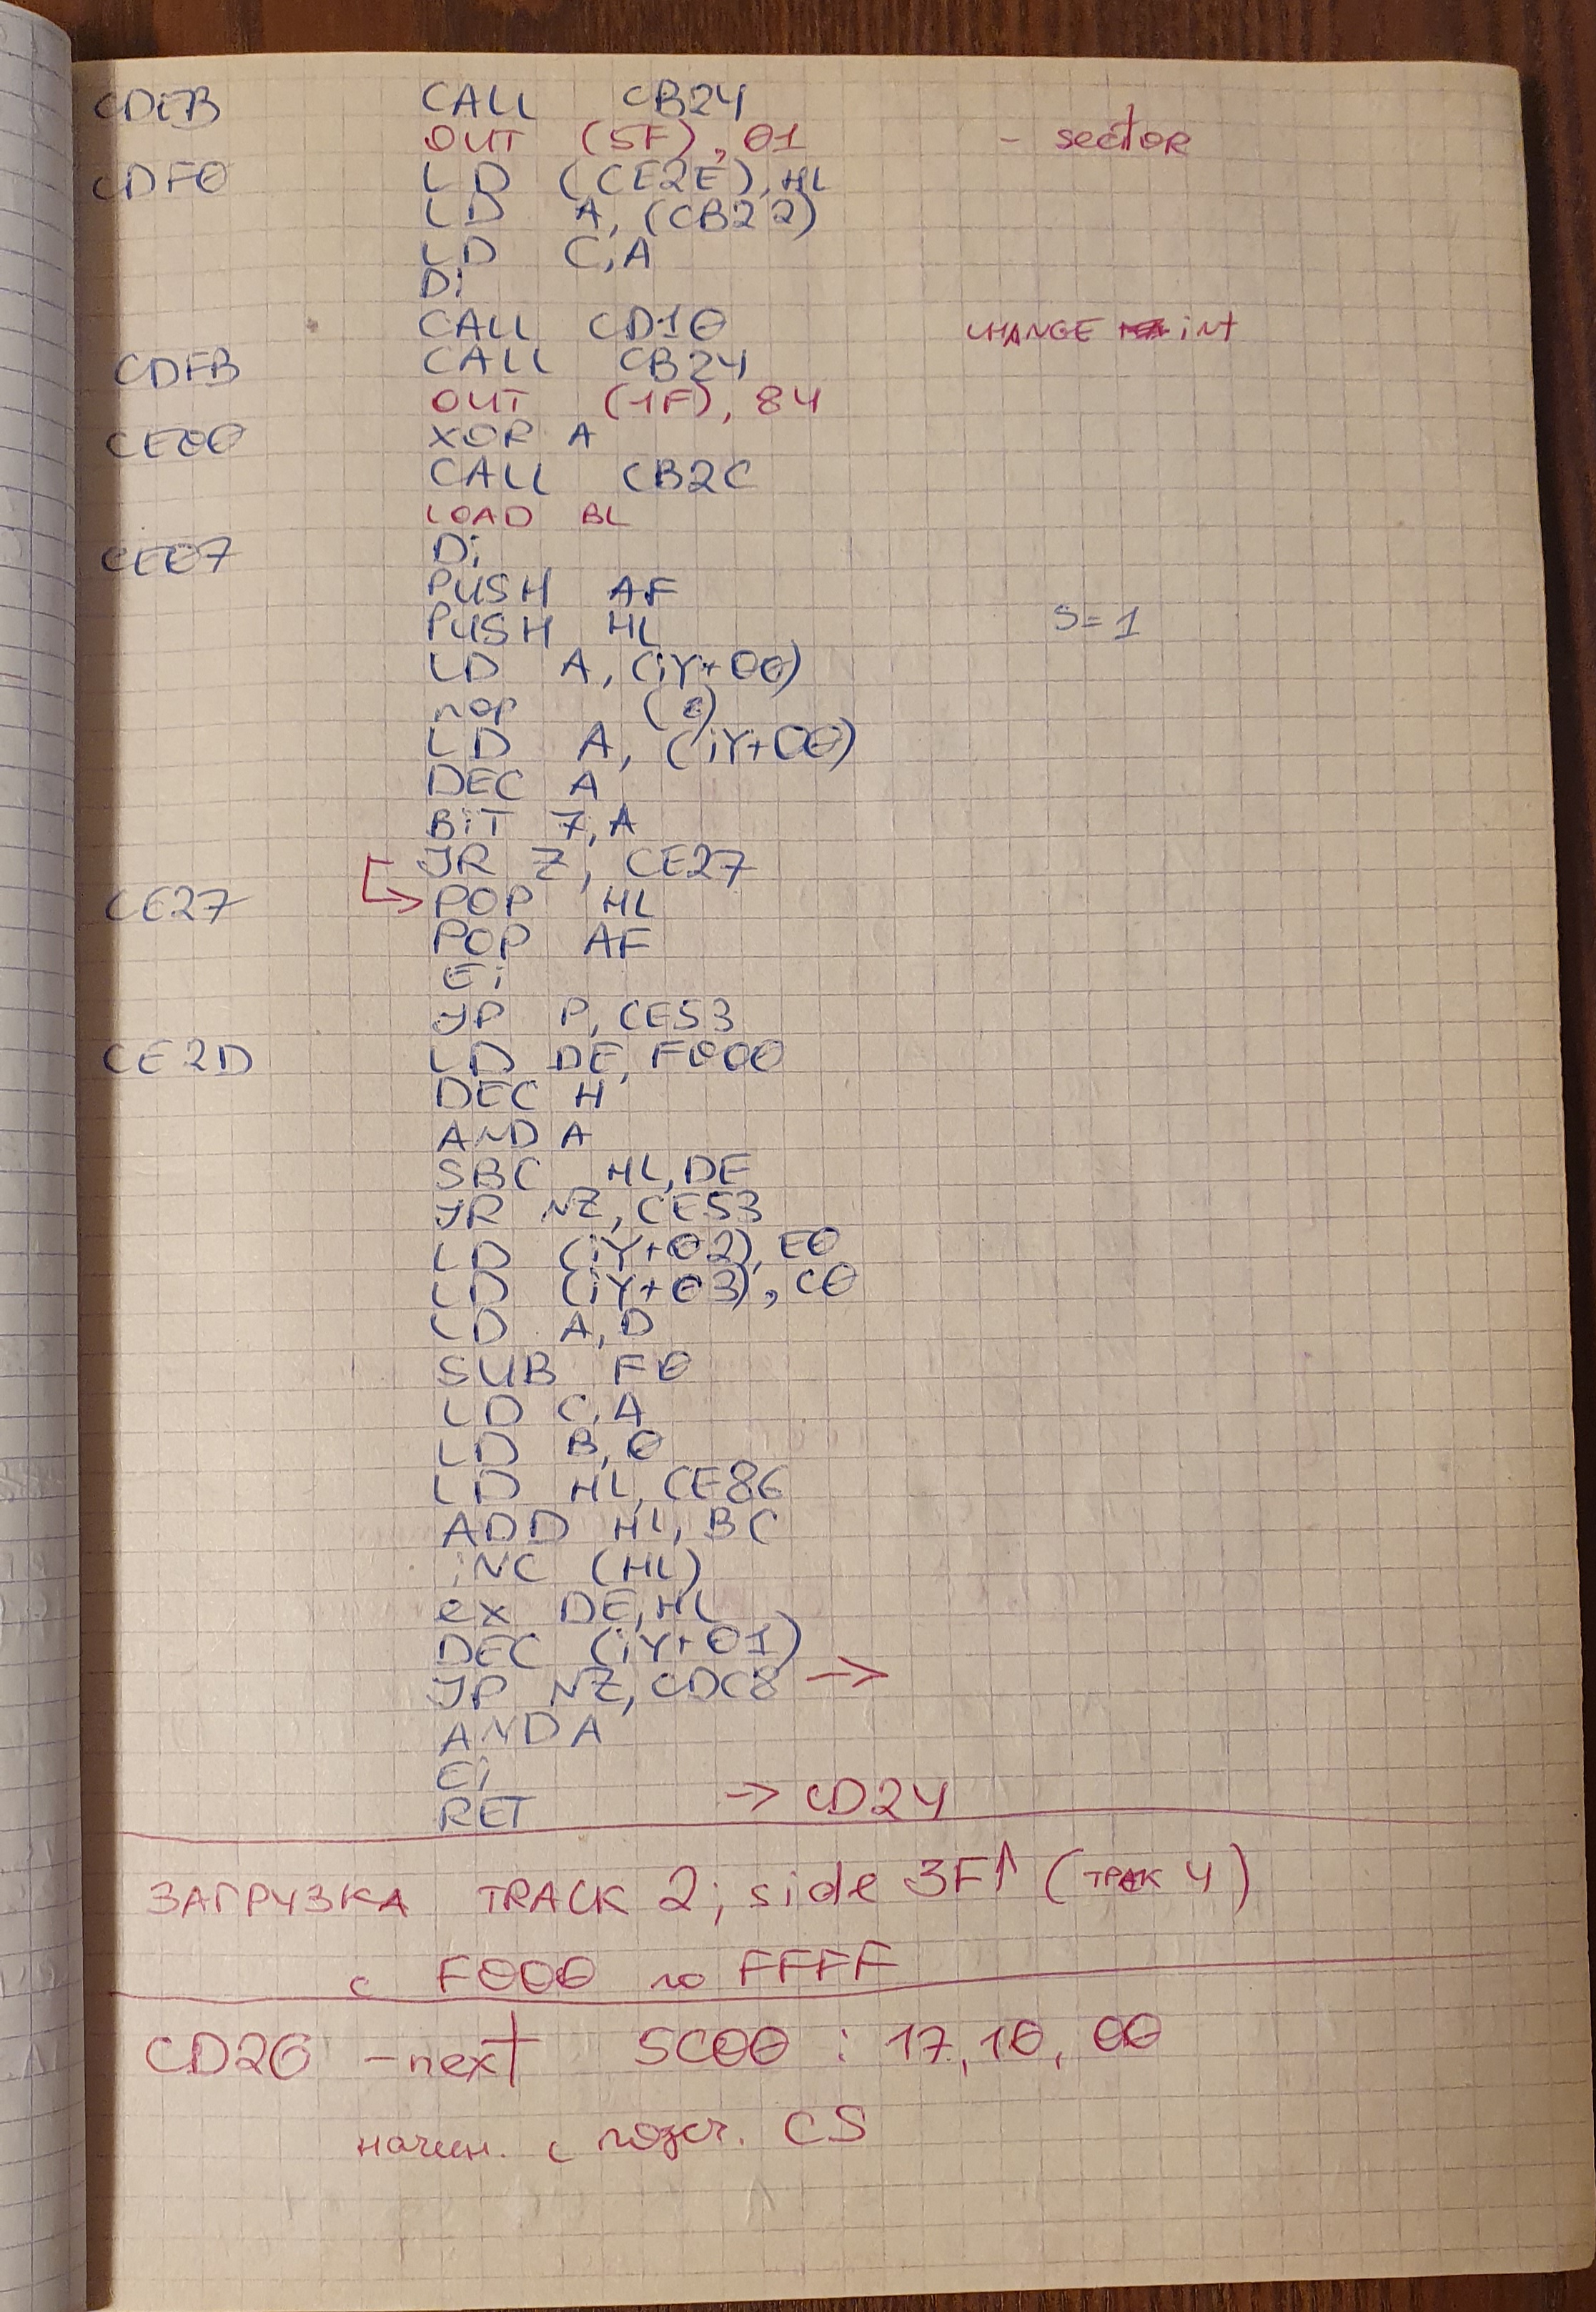 CDEB CALL CB24
OUT (5F), 01 - sector
CDF0 LD (CE2E), HL
LD A, (CB22)
LD C, A
Di
CALL CD10 CHANGE int
CDFB CALL CB24
OUT (1F), 84
CE00 XOR A
CALL CB2C
LOAD BL
CE07 Di
PUSH AF
PUSH HL S=1
LD A, (iY+00)
nop
LD A, (iY+00)
DEC A
BiT 7, A
JR Z, CE27
CE27 POP HL
POP AF
Ei
JP P, CE53
CE2D LD DE, F000
DEC H
AND A
SBC HL, DE
JR NZ, CE53
LD (iY+02), E0
LD (iY+03), C0
LD A, D
SUB F0
LD C, A
LD B, 0
LD HL, CE86
ADD HL, BC
iNC (HL)
ex DE, HL
DEC (iY+01)
JP NZ, CDC8 →
AND A
Ei
RET → CD24
ЗАГРУЗКА TRACK 2; side 3F↑ (ТРЕК 4)
с F000 по FFFF
CD26 - next 5C00 : 17, 10, 00
начин. с подсч. CS